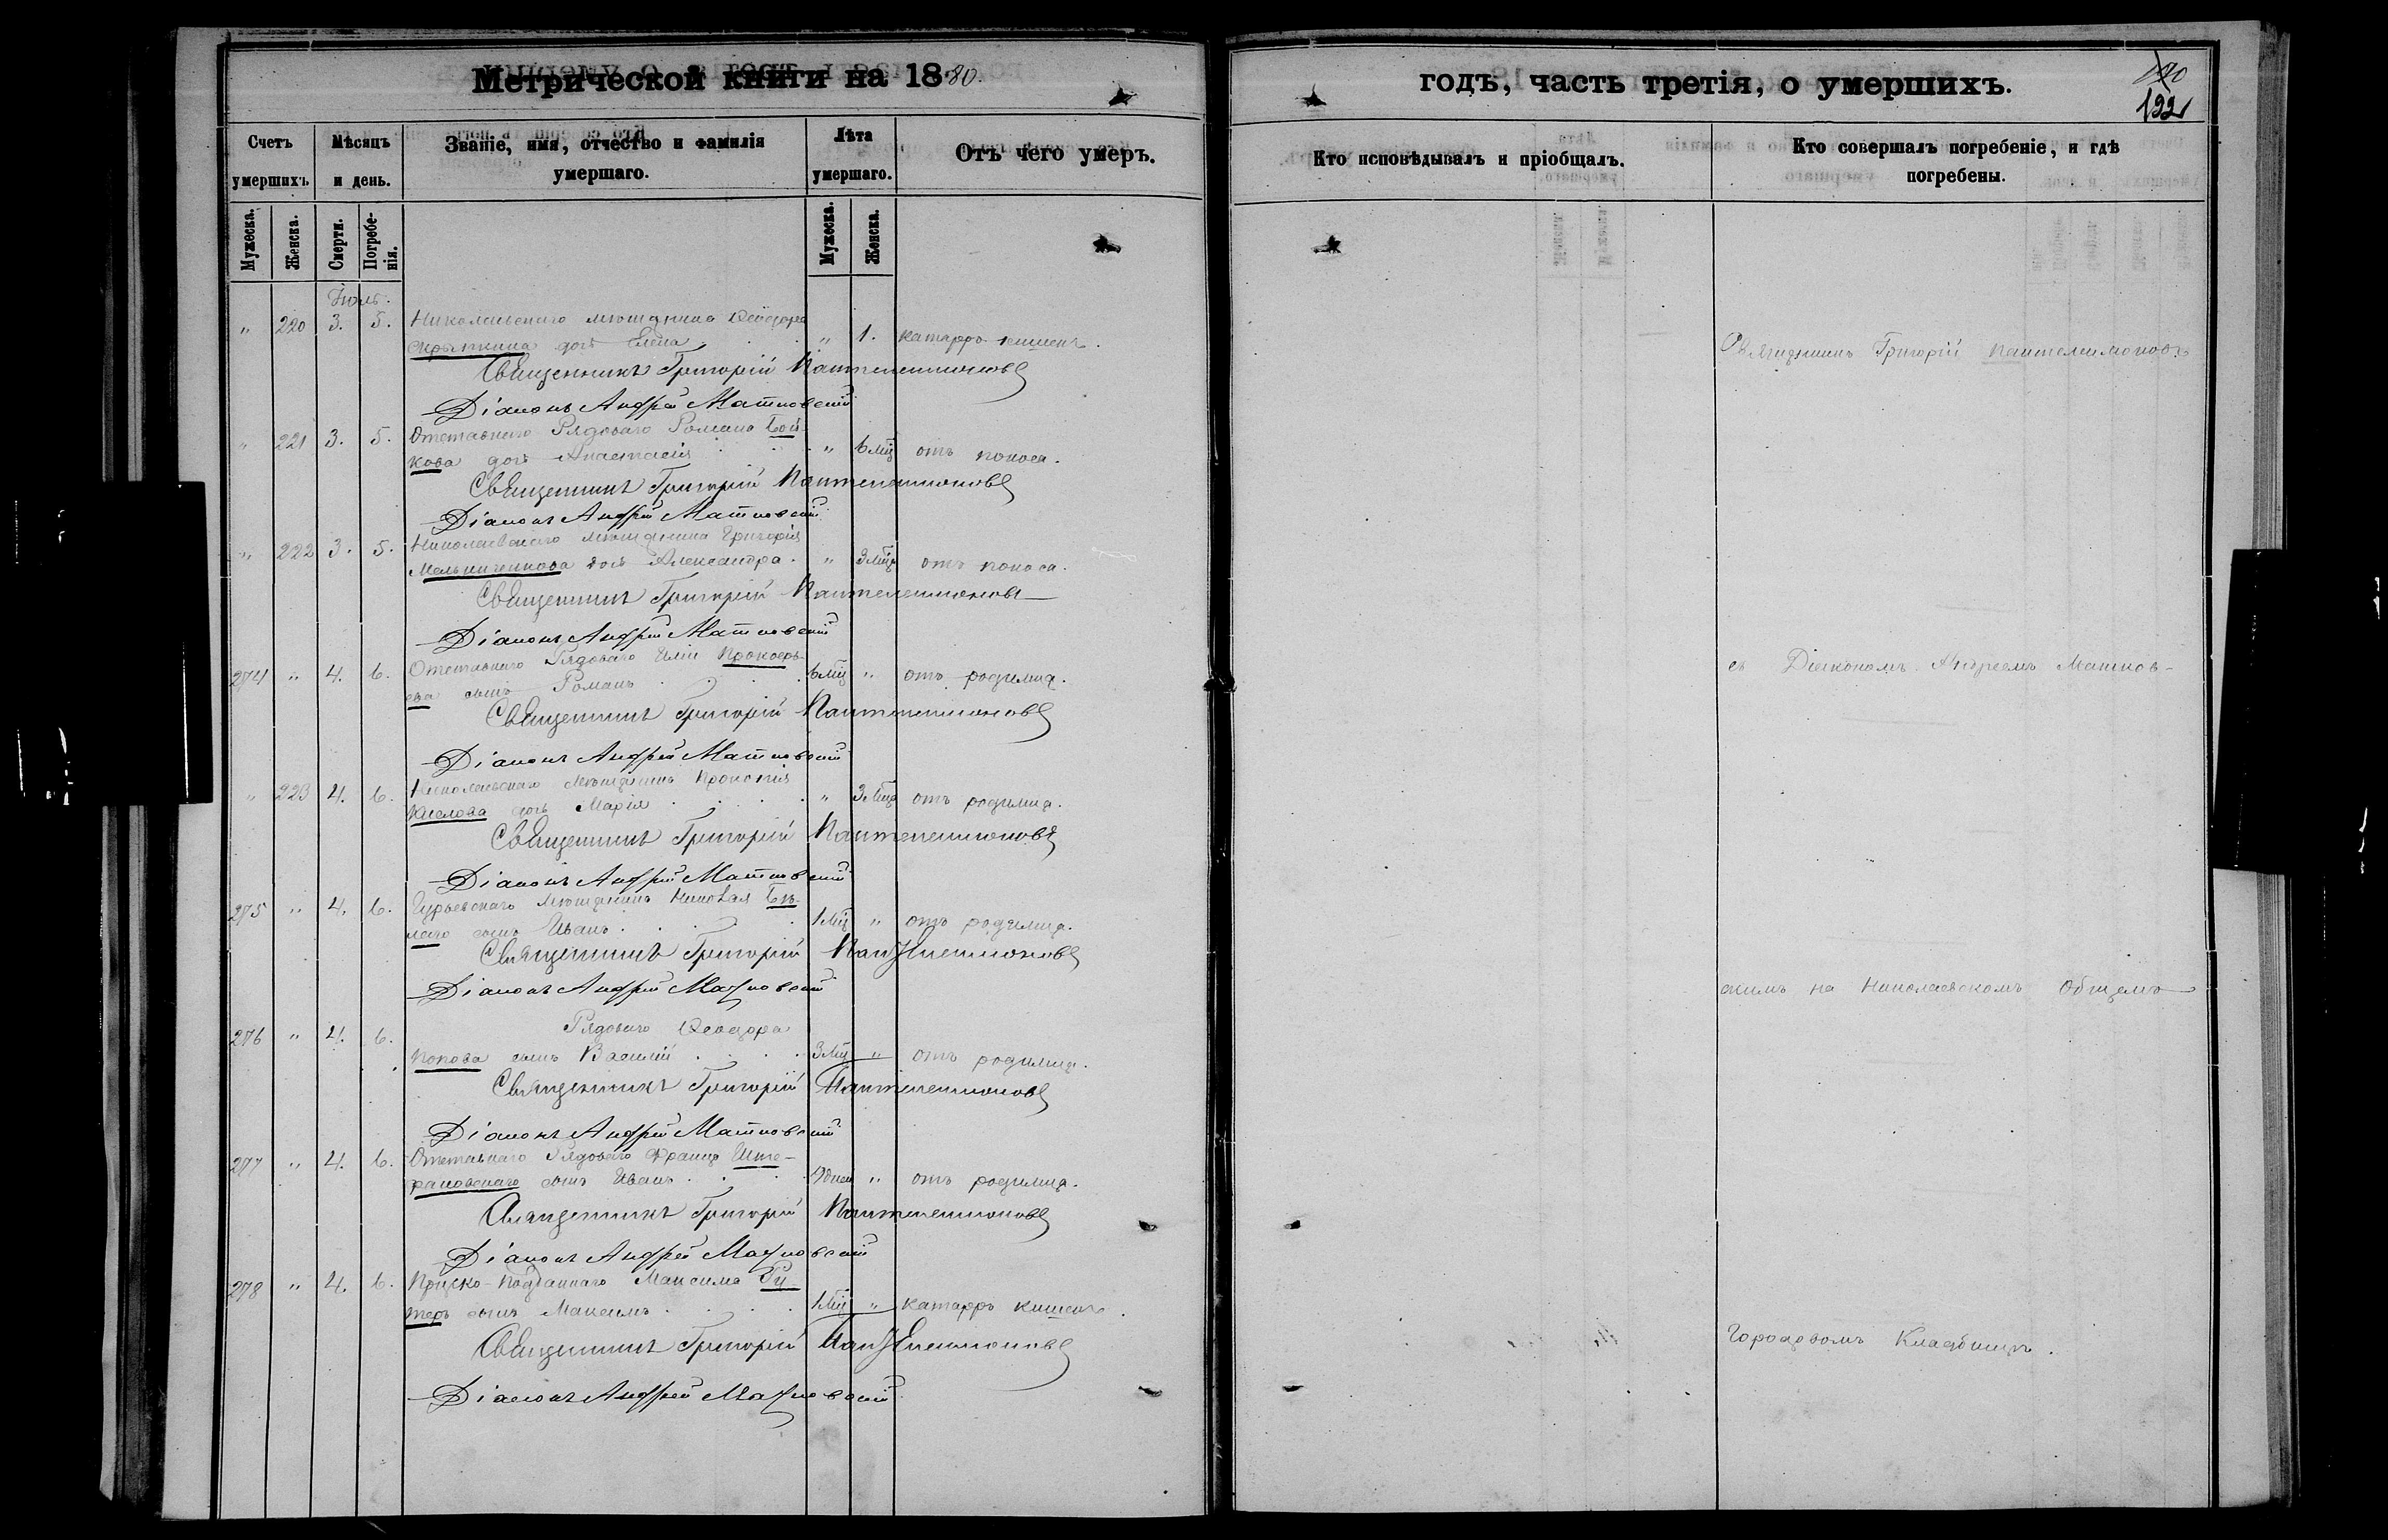 Метрической книги на 1880.
годъ, часть третія, о умершихъ.
132
Счетъ умершихъ
Мѣсяцъ и день.
Званіе, имя, отчество и фамилія умершаго.
Лѣта умершаго.
Отъ чего умеръ.
Кто исповѣдывалъ и пріобщалъ.
Кто совершалъ погребеніе, и гдѣ погребены.
Мужеска. Женска. Смерти. Погребенія. Мужеска. Женска.
Іюль.
" 220 3. 5. Николаевскаго мѣщанина Ѳеодора
дочь Елена " 1. катарръ кишекъ.
Священникъ Григорій Пантелеимоновъ
Діаконъ Андрей Матковскій
" 221 3. 5. Отставнаго Рядоваго Романа Бой-
кова дочь Анастасія " 6 мц отъ поноса.
Священникъ Григорій Пантелеимоновъ
Діаконъ Андрей Матковскій
" 222 3. 5. Николаевскаго мѣщанина Григорія
Мельниченкова дочь Александра. " 3 мца отъ поноса.
Священникъ Григорій Пантелеимоновъ
Діаконъ Андрей Матковскій
274 " 4. 6. Отставнаго Рядоваго Иліи Прокофь-
ева сынъ Романъ 6 мц " отъ родимца.
Священникъ Григорій Пантелеимоновъ
Діаконъ Андрей Матковскій
" 223 4. 6. Николаевскаго мѣщанина Прокопія
дочь Марія " 3 мца отъ родимца.
Священникъ Григорій Пантелеимоновъ
Діаконъ Андрей Матковскій
275 " 4. 6. Гурьевскаго мѣщанина Николая Бѣ-
лаго сынъ Иванъ 1 мц " отъ родимца.
Священникъ Григорій Пантелеимоновъ
Діаконъ Андрей Матковскій
276 " 4. 6. Рядоваго Ѳеодора
Попова сынъ Василій 3 мц " отъ родимца.
Священникъ Григорій Пантелеимоновъ
Діаконъ Андрей Матковскій
277 " 4. 6. Отставнаго Рядоваго Франца
сынъ Иванъ 9 дней " отъ родимца.
Священникъ Григорій Пантелеимоновъ
Діаконъ Андрей Матковскій
278 " 4. 6. Пруско-Подданнаго Максима Ру-
теръ сынъ Максимъ 1 мц " катарръ кишекъ.
Священникъ Григорій Пантелеимоновъ
Діаконъ Андрей Матковскій
Священникъ Григорій Пантелеимоновъ
съ Діакономъ Андреемъ Матков-
скимъ на Николаевскомъ Общемъ
Городовомъ Кладбищѣ.